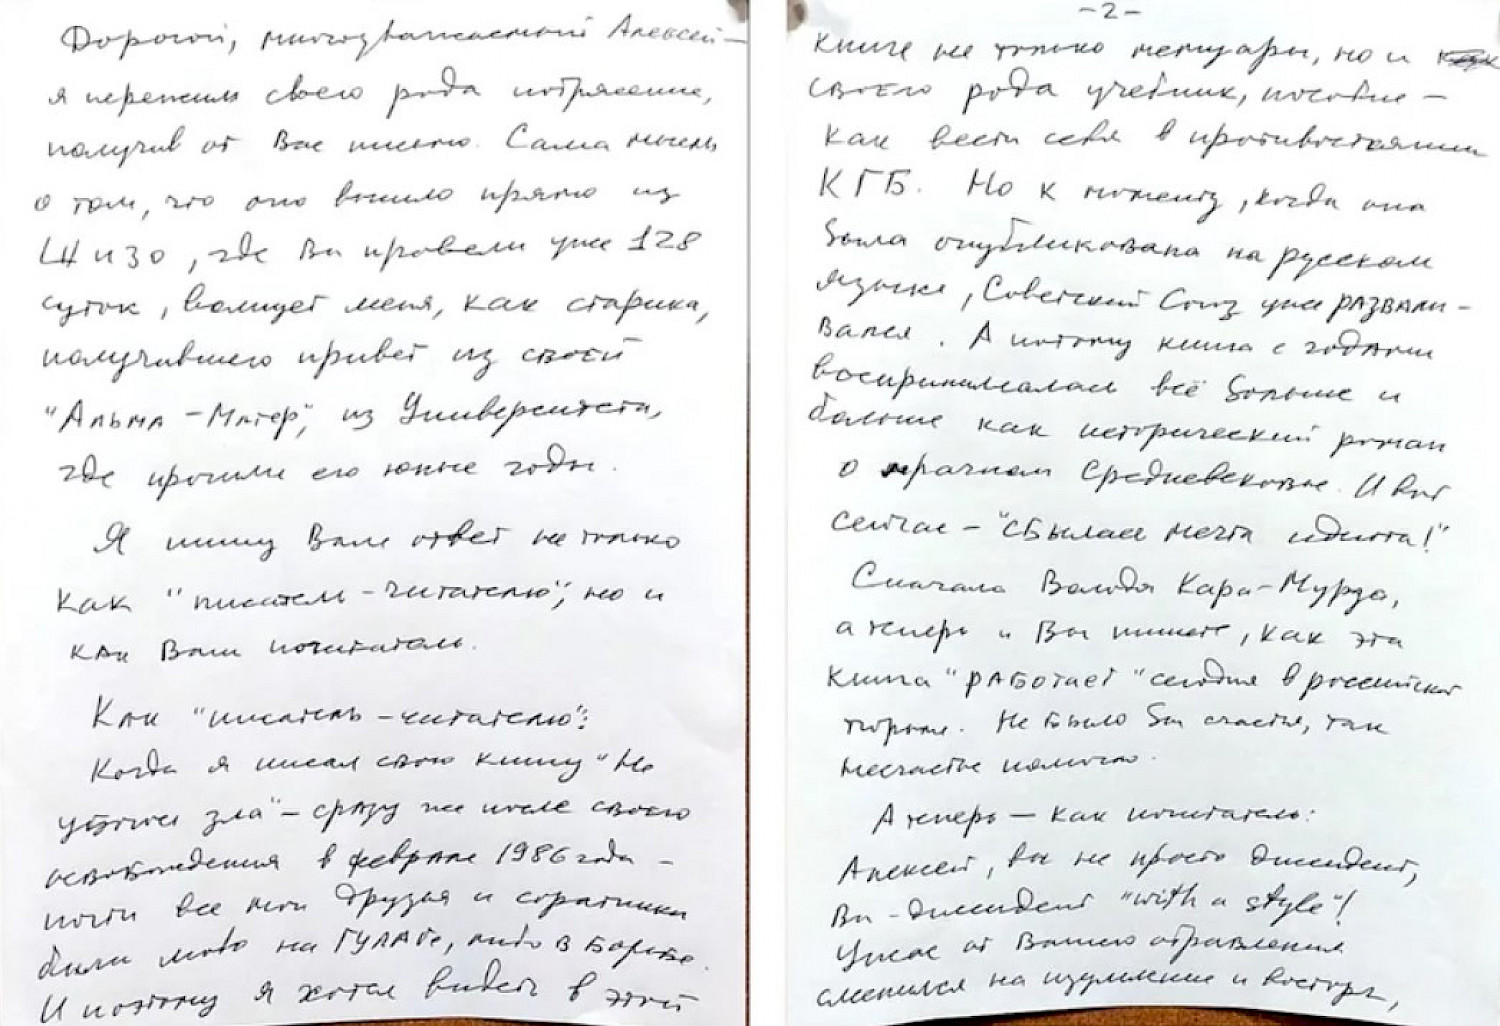 Дорогой, многоуважаемый Алексей —
я пережил своего рода потрясение,
получив от Вас письмо. Сама мысль
о том, что оно вышло прямо из
ШИЗО, где Вы провели уже 128
суток, волнует меня, как старика,
получившего привет из своей
"Альма-Матер", из Университета,
где прошли его юные годы.
Я пишу Вам ответ не только
как "писатель-читателю", но и
как Ваш почитатель.
Как "писатель-читателю":
Когда я писал свою книгу "Не
убоюсь зла" – сразу же после своего
освобождения в феврале 1986 года –
почти все мои друзья и соратники
были либо на ГУЛАГе, либо в борьбе.
И поэтому я хотел видеть в этой
-2-
книге не только мемуары, но и
своего рода учебник, пособие –
как вести себя в противостоянии
КГБ. Но к моменту, когда она
была опубликована на русском
языке, Советский Союз уже развали-
вался. А потому книга с годами
воспринималась всё больше и
больше как исторический роман
о мрачном Средневековье. И вот
сейчас – "сбылась мечта идиота!"
Сначала Володя Кара-Мурза,
а теперь и Вы пишете, как эта
книга "работает" сегодня в российской
тюрьме. Не было бы счастья, так
несчастье помогло.
А теперь — как почитатель:
Алексей, вы не просто диссидент,
Вы – диссидент "with a style"!
Ужас от Вашего отравления
сменился на изумление и восторг,